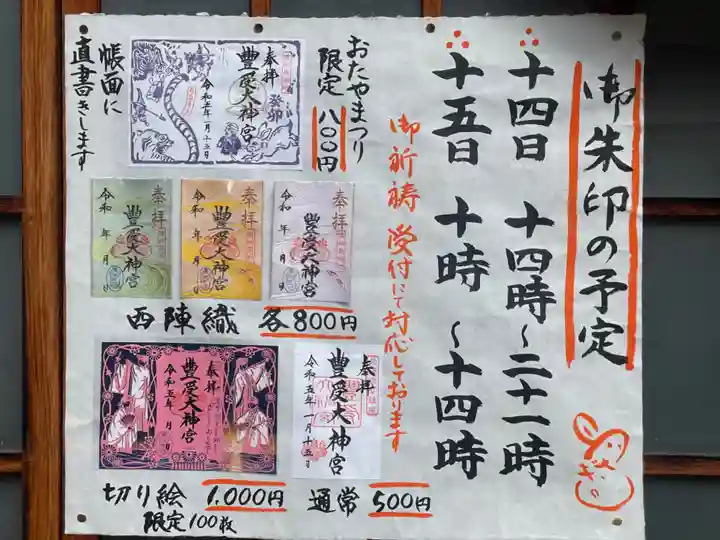 御朱印の予定
十四日 十四時～二十一時
十五日 十時～十四時
御祈祷受付にて対応しております
おたやまつり
限定 八〇〇円
帳面に
直書きします
奉拝
豊受大神宮
癸卯
令和五年一月十五日
奉拝
豊受大神宮
令和 年 月 日
奉拝
豊受大神宮
令和 年 月 日
奉拝
豊受大神宮
令和 年 月 日
西陣織 各800円
奉拝
豊受大神宮
令和五年 月 日
切り絵 1,000円
限定100枚
奉拝
豊受大神宮
令和五年一月十五日
通常 500円